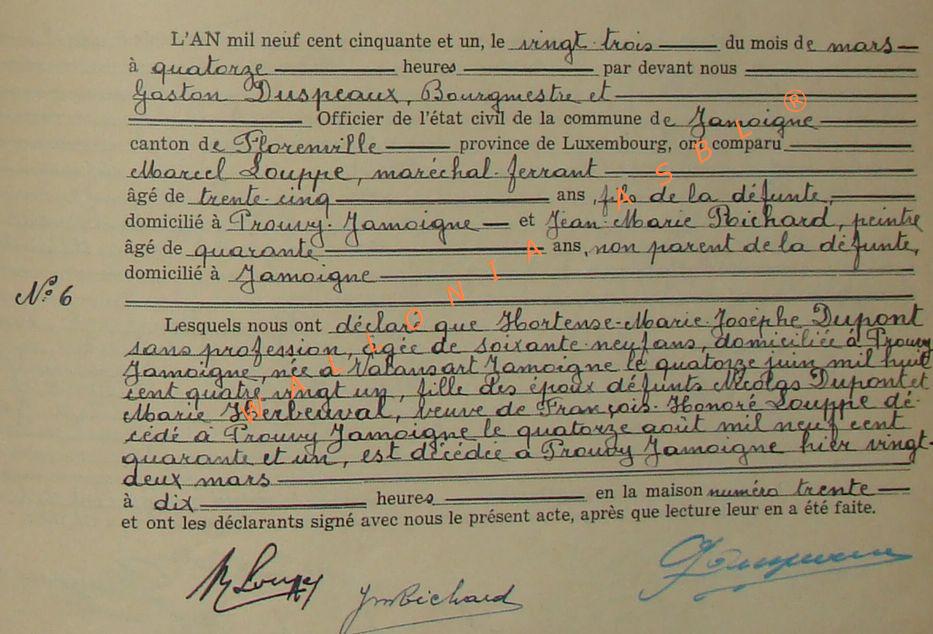 L'AN mil neuf cent cinquante et un, le vingt-trois du mois de mars
à quatorze heures par devant nous
Gaston Duspeaux, Bourgmestre et
Officier de l'état civil de la commune de Jamoigne
canton de Florenville province de Luxembourg, ont comparu
Marcel Louppe, maréchal-ferrant
âgé de trente-cinq ans, fils de la défunte,
domicilié à Prouvy-Jamoigne et Jean-Marie Bichard, peintre
âgé de quarante ans, non parent de la défunte,
domicilié à Jamoigne
N° 6
Lesquels nous ont déclaré que Hortense-Marie-Josèphe Dupont
sans profession, agée de soixante-neuf ans, domiciliée à Prouvy
Jamoigne, née à Valansart Jamoigne le quatorze juin mil huit
cent quatre-vingt un, fille des époux défunts Nicolas Dupont et
Marie Herbeuval, veuve de François-Honoré Louppe dé-
cédé à Prouvy Jamoigne le quatorze août mil neuf cent
quarante et un, est décédée à Prouvy Jamoigne hier vingt-
deux mars
à dix heures en la maison numéro trente
et ont les déclarants signé avec nous le présent acte, après que lecture leur en a été faite.
M Louppe JmBichard
WALLONIA ASBL ®